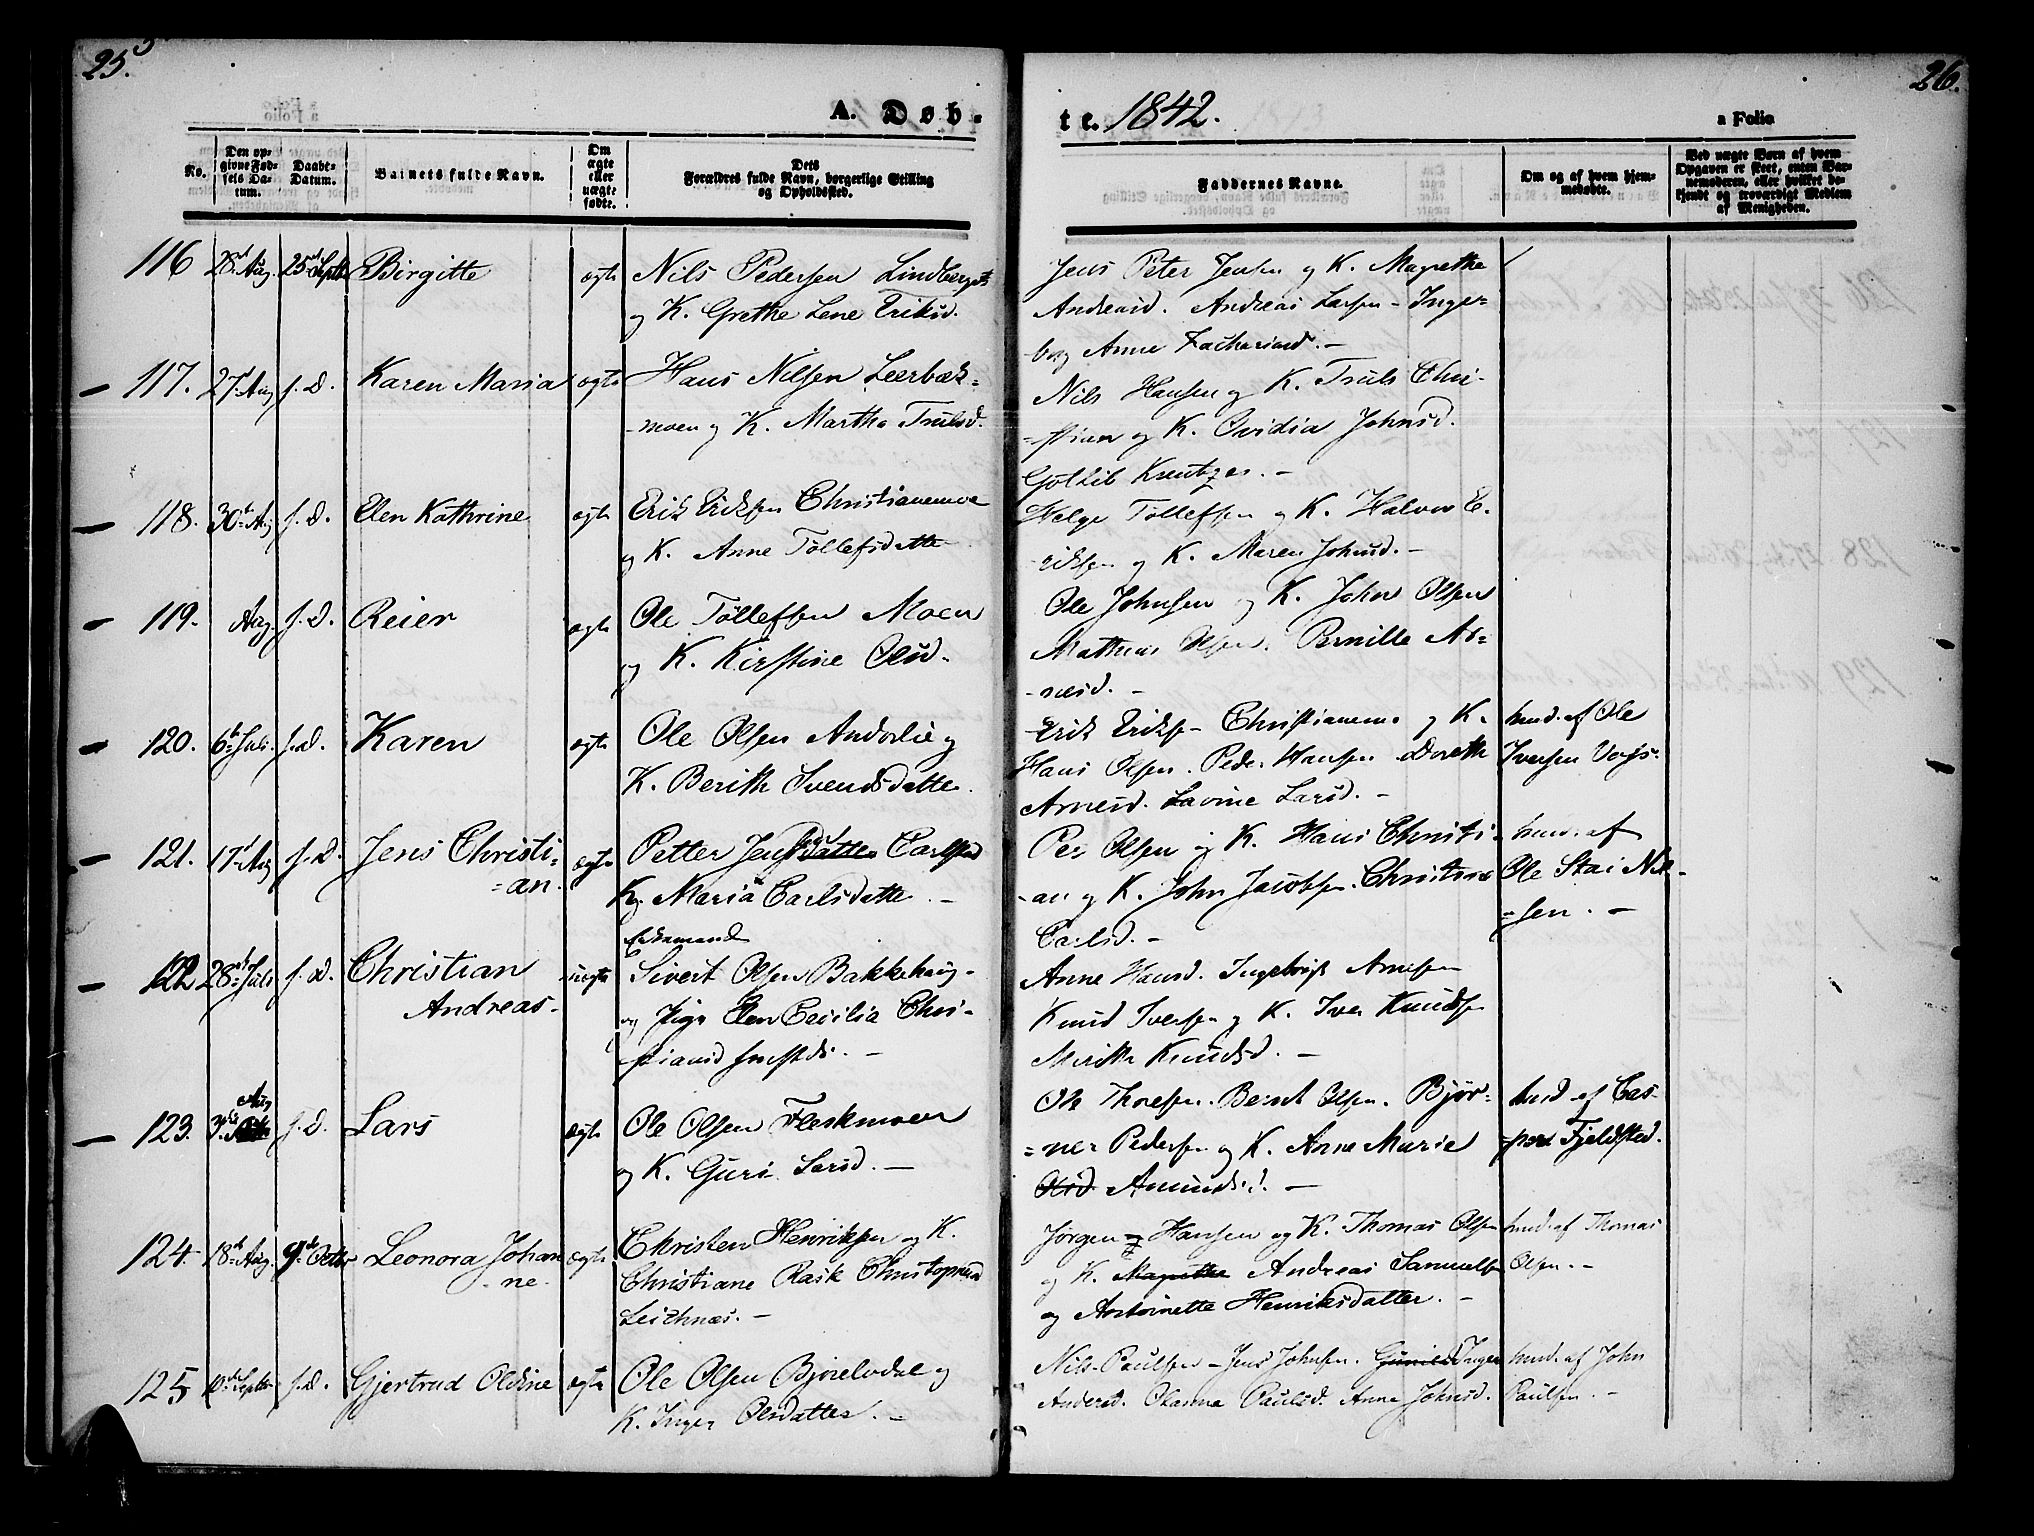 25.
26.
A. Døb-
te. 1842.
a Folio
No.
Den op-
givne Fød-
sels Da-
tum.
Daabs-
Datum.
Barnets fulde Navn.
Om
ægte
eller
uægte
fødte.
Dets
Forældres fulde Navn, borgerlige Stilling
og Opholdssted.
Faddernes Navne.
Om og af hvem hjem-
medøbt.
Ved uægte Børn af hvem
Opgaven er skeet, enten Bar-
nemoderen, eller hvilket be-
kjendt og troværdigt Medlem
af Menigheden.
116 28d Aug. 25d Septbr Birgitte ægte Nils Pedersen Lindberget
og K. Grethe Lene Eriksd.
Jens Peter Jensen og K. Magrethe
Andreasd. Andreas Larsen - Inge-
borg Anne Zachariasd. -
117. 27d Aug s. D. Karen Maria ægte Hans Nilsen Leerbæk-
moen og K. Marthe Trulsd.
Nils Hansen og K. Truls Chri-
stian og K. Ovidia Johnsd.
Gotlib Kreutzer. -
118. 30te Aug s. D. Elen Kathrine ægte Erik Eriksen Christianemoe
og K. Anne Tollefsdatte
Helge Tollefsen og K. Halvor E-
riksen og K. Maren Johnsd. -
119. Aug. s. D. Reier ægte Ole Tollefsen Moen
og K. Kirstine Olsd.
Ole Johnsen og K. John Olsen
Mathias Olsen. Pernille Ar-
nesd. -
120. 6te Juli. s. d. Karen ægte Ole Olsen Anderlie og
K. Berith Svendsdatte.
Erik Eriks- Christianemo og K.
Hans Olsen. Peder Hansen Doreth
Arnesd. Lavine Larsd. -
hmd. af Ole
Iversen
121. 17d Aug s. D. Jens Christi-
an. ægte Petter Carlstad
K. Maria Carlsdatte. -
Per Olsen og K. Hans Christi-
an og K. John Jacobsen. Christine
Carlsd. -
hmd. af
Ole Stai Nil-
sen. -
122 28de Juli s. d. Christian
Andreas- uægte Enkemand
Sivert Olsen Bakkehaug-
og Pige Elen Cecilia Chri-
stiansd
Anne Hansd. Ingebrigt Arnesen
Knud Iversen og K. Iver Knudsen
Merithe Knudsd. -
123. 3die Aug s. D. Lars ægte Ole Olsen Fleskmoen
og K. Guri Larsd. -
Ole Thoresen. Bernt Olsen. Bjør-
ner Pedersen og K. Anne Marie
Olsd Amundsd. -
hmd. af Cas-
per Fjeldsted.
124. 18de Aug. 9de Octbr Leonora Johan
ne. ægte Christen Henriksen og K.
Christiane Rask Christophersd
Leithnæs. -
Jørgen og Hansen og K. Thomas Olsen
og K. Magrethe Andreas Samuelsen
og Antoinette Henriksdatter. -
hmd. af Thomas
Olsen. -
125 10de Septbr s. d. Gjertrud Oldine ægte Ole Olsen Bjørelvdal og
K. Inger Olsdatter. -
Nils Paulsen - Jens Johnsen. Gunild Inger
Andersd. Oleanna Paulsd. Anne Johnsd.
hmd. af John
Paulsen. -